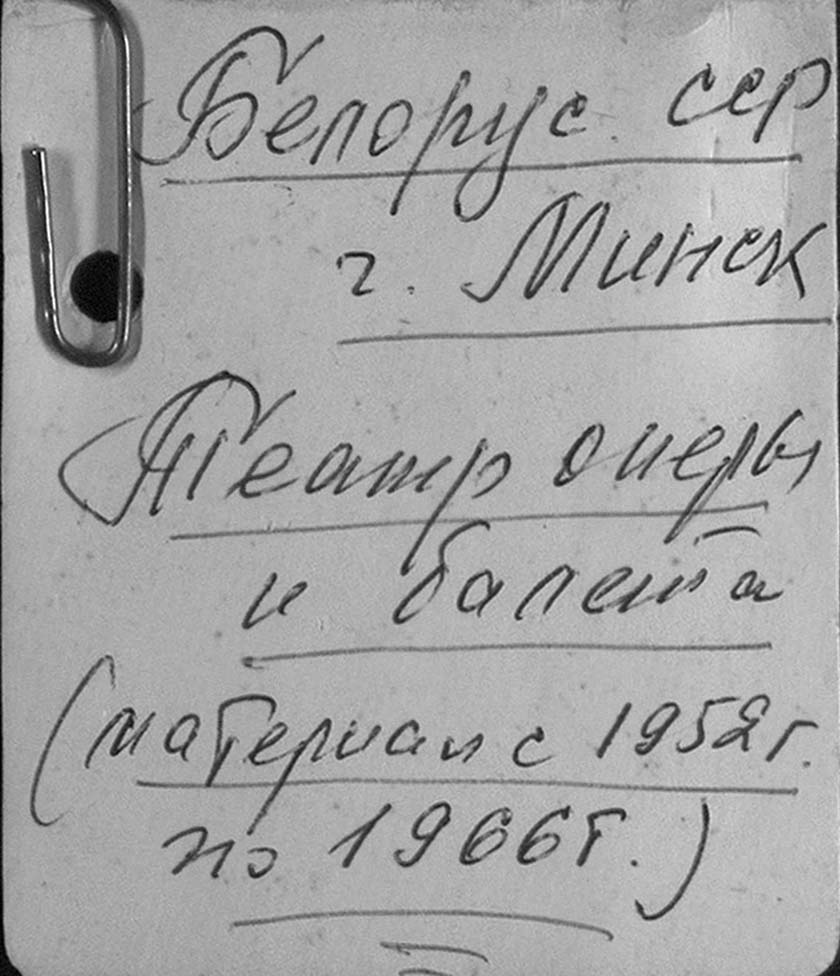 Белорус. ССР
г. Минск
Театр оперы
и балета
(материал с 1952г.
по 1966г.)